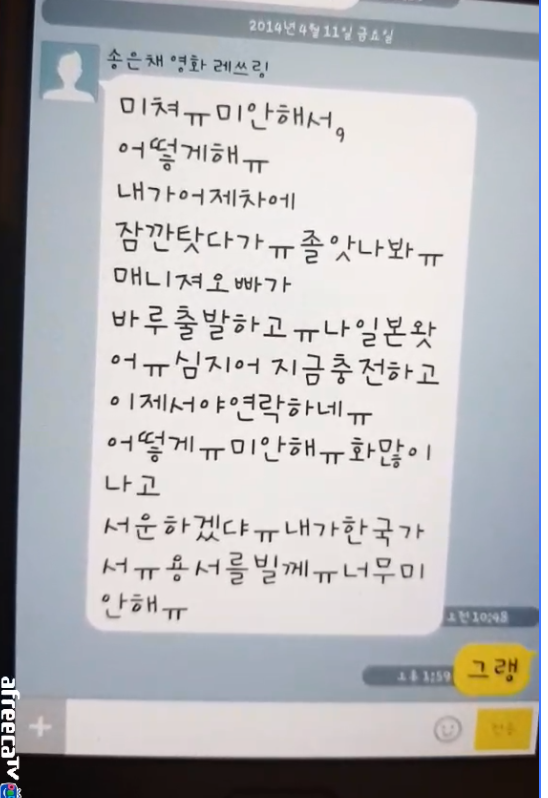 2014년 4월 11일 금요일
송은채 영화 레쓰링
미쳐ㅠ미안해서,
어떻게해ㅠ
내가어제차에
잠깐탓다가ㅠ졸앗나봐ㅠ
매니져오빠가
바루출발하고ㅠ나일본왓
어ㅠ심지어 지금충전하고
이제서야연락하네ㅠ
어떻게ㅠ미안해ㅠ화많이
나고
서운하겠댜ㅠ내가한국가
서ㅠ용서를빌께ㅠ너무미
안해ㅠ
오전 10:48
오후 1:59
그랭
전송
afreecaTV